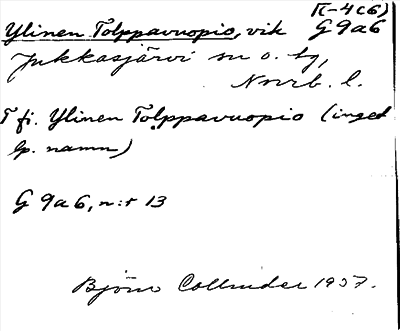 [K-4c6)
Ylinen Tolppavuopio, vik G 9a6
Jukkasjärvi sn o. tg,
Norrb. l.
T fi. Ylinen Tolppavuopio (inget
lp. namn)
G 9a6, n:r 13
Björn Collinder 1937.